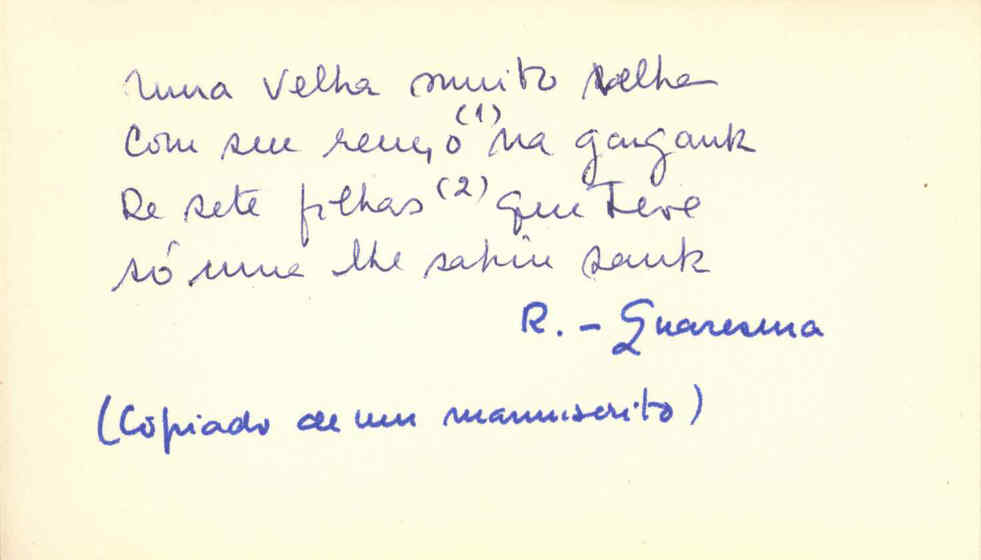 Uma velha muito velha
Com seu lenço (1) na garganta
De sete filhas (2) que Teve
só uma lhe sahiu santa
R. - Quaresma
(Copiado de um manuscrito)